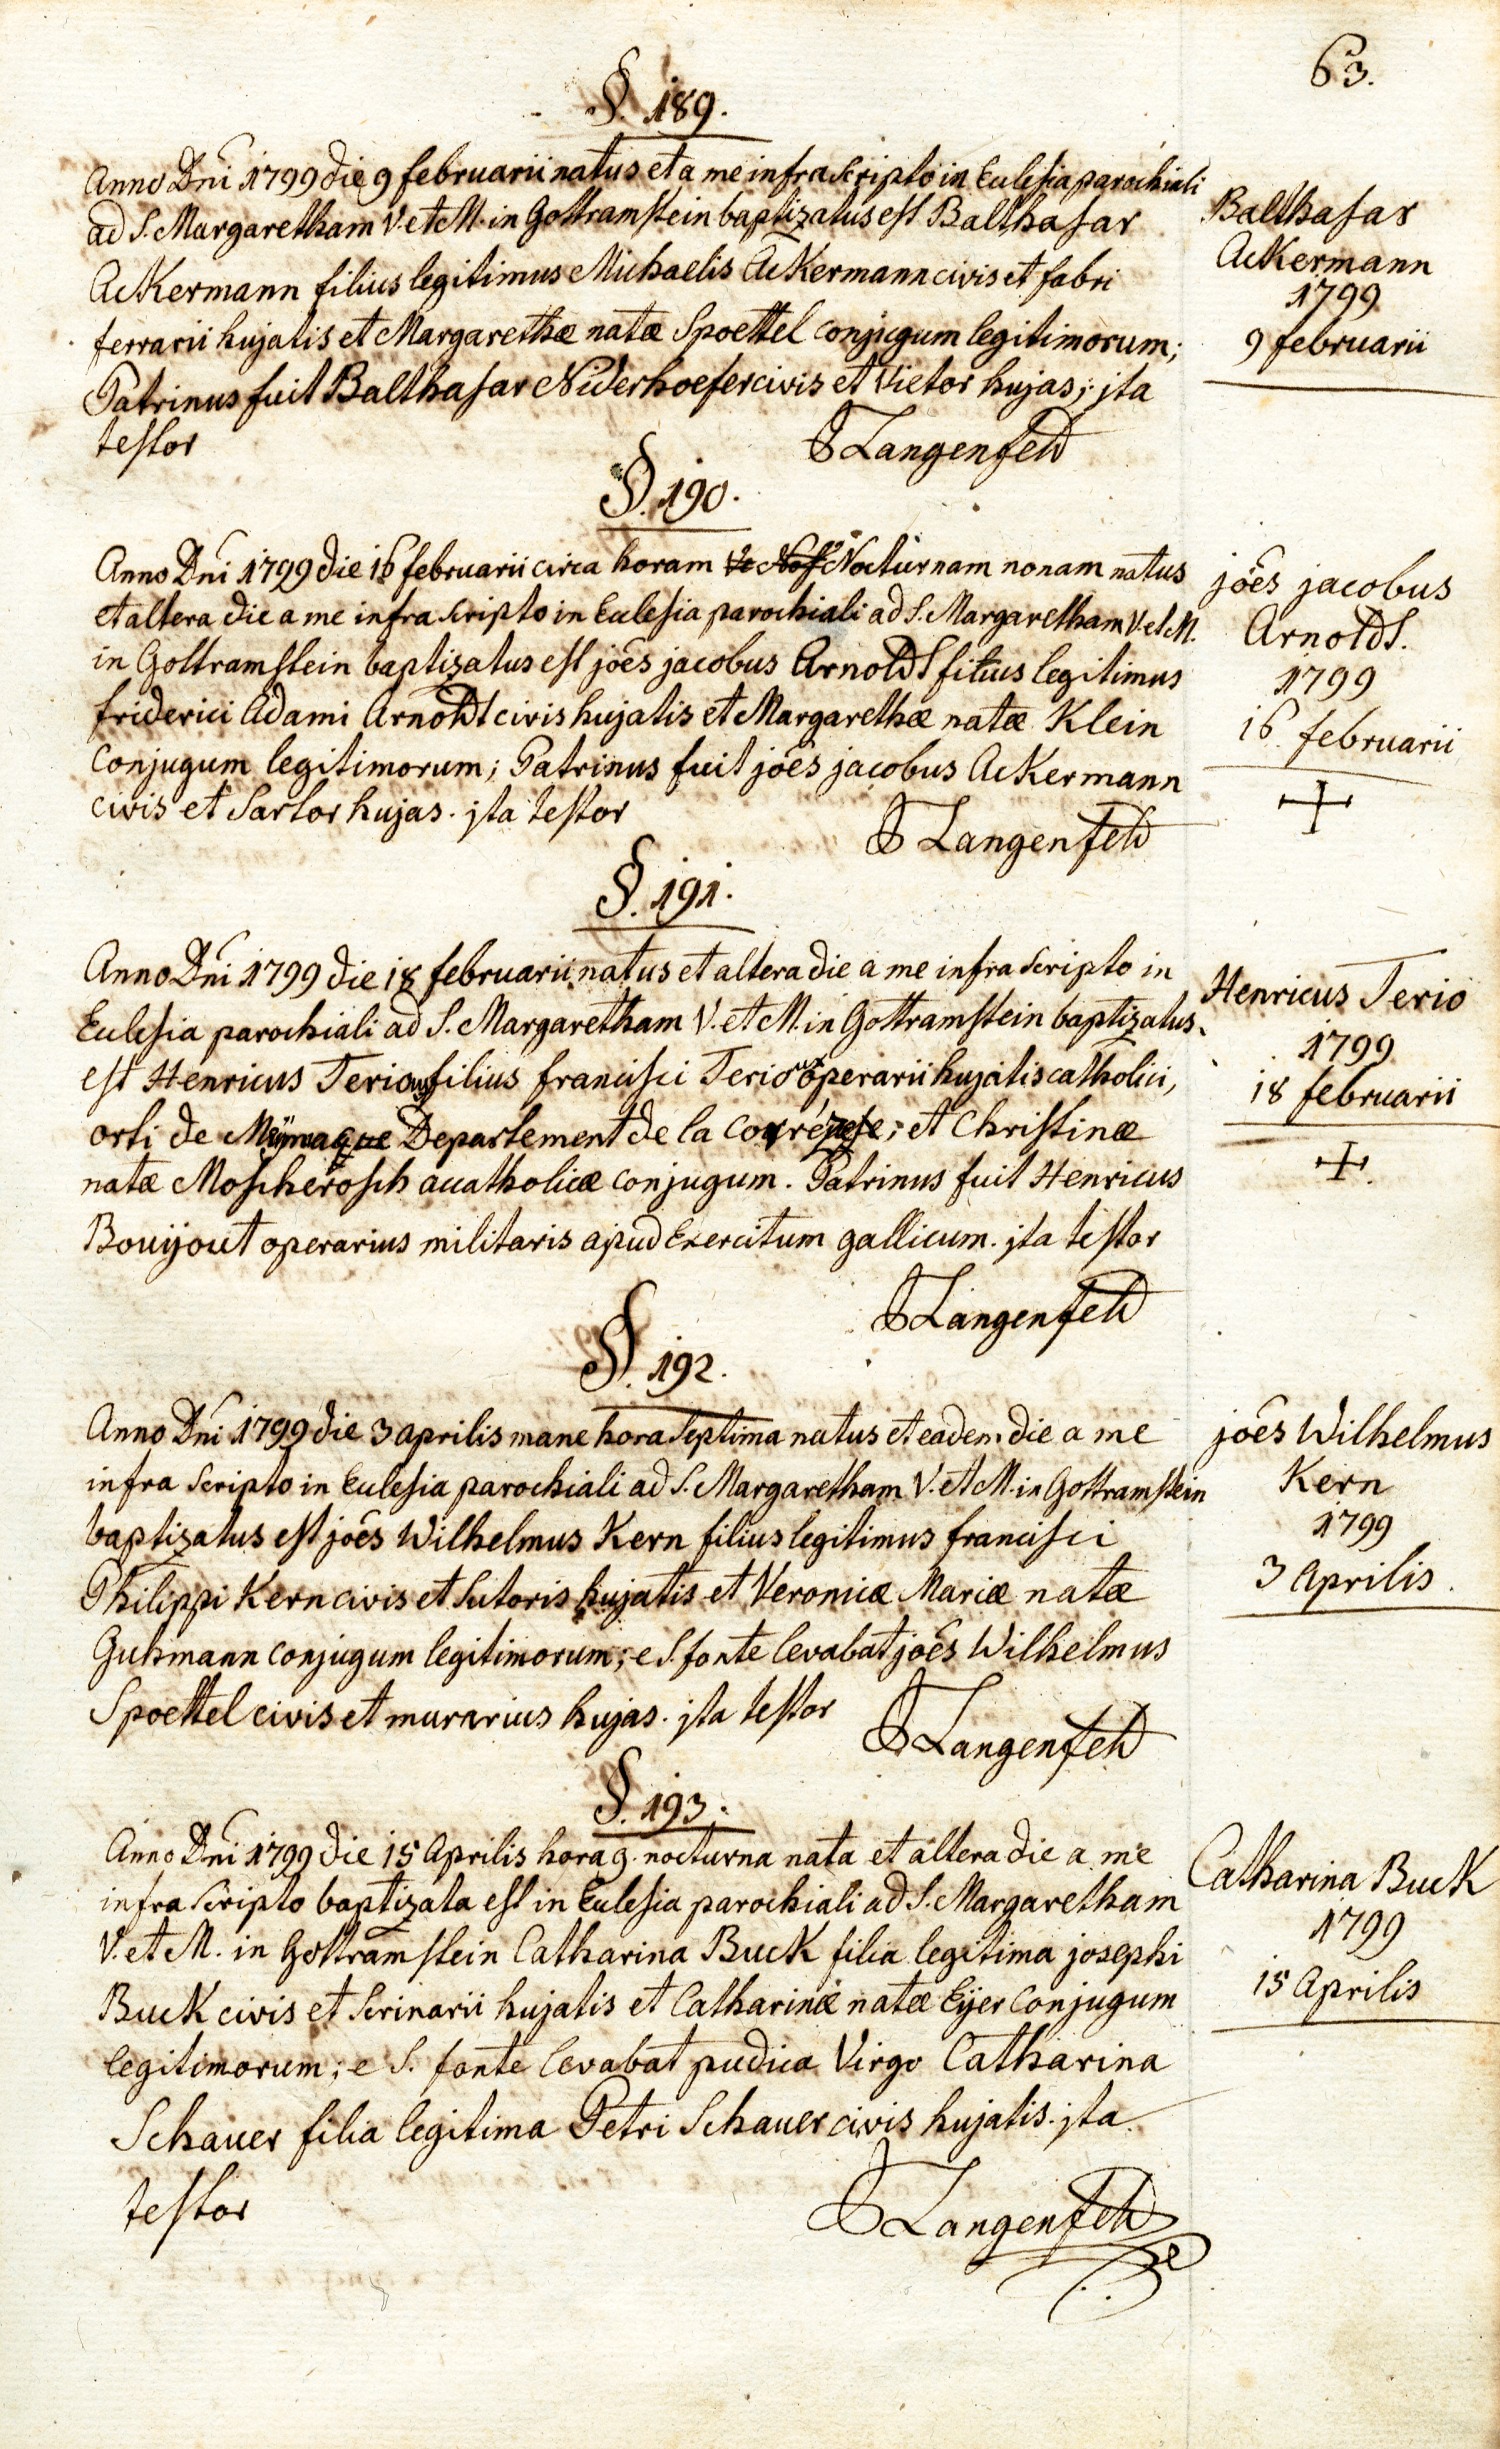 63.
§. 189.
Anno Dni 1799 die 9 februarii natus et a me infra scripto in Ecclesia parochiali
ad S. Margaretham V. et M. in Gottramstein baptizatus est Balthasar
Ackermann filius legitimus Michaelis Ackermann civis et fabri
ferrarii hujatis et Margarethæ natæ Spoettel conjugum legitimorum;
Patrinus fuit Balthasar Niderhoefer civis et Vietor hujas; jta
testor
J Langenfeld
Balthasar
Ackermann
1799
9 februarii
§. 190.
Anno Dni 1799 die 16 februarii circa horam Nocturnam nonam natus
et altera die a me infra scripto in Ecclesia parochiali ad S. Margaretham V. et M.
in Gottramstein baptizatus est jões jacobus Arnoldt filius legitimus
friderici Adami Arnoldt civis hujatis et Margarethæ natæ Klein
conjugum legitimorum; Patrinus fuit jões jacobus Ackermann
civis et Sartor hujas. jta testor
J Langenfeld
jões jacobus
Arnoldt.
1799
16 februarii
+
§. 191.
Anno Dni 1799 die 18 februarii natus et altera die a me infra scripto in
Ecclesia parochiali ad S. Margaretham V. et M. in Gottramstein baptizatus
est Henricus Terio filius francisci Terio operarii hujatis catholici,
orti de Departement de la et Christinæ
natæ Moscherosch acatholicæ conjugum. Patrinus fuit Henricus
Bouijout operarius militaris apud Exercitum gallicum. jta testor
J Langenfeld
Henricus Terio
1799
18 februarii
+
§. 192.
Anno Dni 1799 die 3 aprilis mane hora septima natus et eadem die a me
infra scripto in Ecclesia parochiali ad S. Margaretham V. et M. in Gottramstein
baptizatus est jões Wilhelmus Kern filius legitimus francisci
Philippi Kern civis et Sutoris hujatis et Veronicæ Mariæ natæ
conjugum legitimorum; e S. fonte levabat jões Wilhelmus
Spoettel civis et murarius hujas. jta testor
J Langenfeld
jões Wilhelmus
Kern
1799
3 aprilis.
§. 193.
Anno Dni 1799 die 15 Aprilis hora 9. nocturna nata et altera die a me
infra scripto baptizata est in Ecclesia parochiali ad S. Margaretham
V. et M. in Gottramstein Catharina Buck filia legitima josephi
Buck civis et Scrinarii hujatis et Catharinæ natæ Eijer conjugum
legitimorum; e S. fonte levabat pudica Virgo Catharina
Schauer filia legitima Petri Schauer civis hujatis. jta
testor
J Langenfeld
Catharina Buck
1799
15 Aprilis